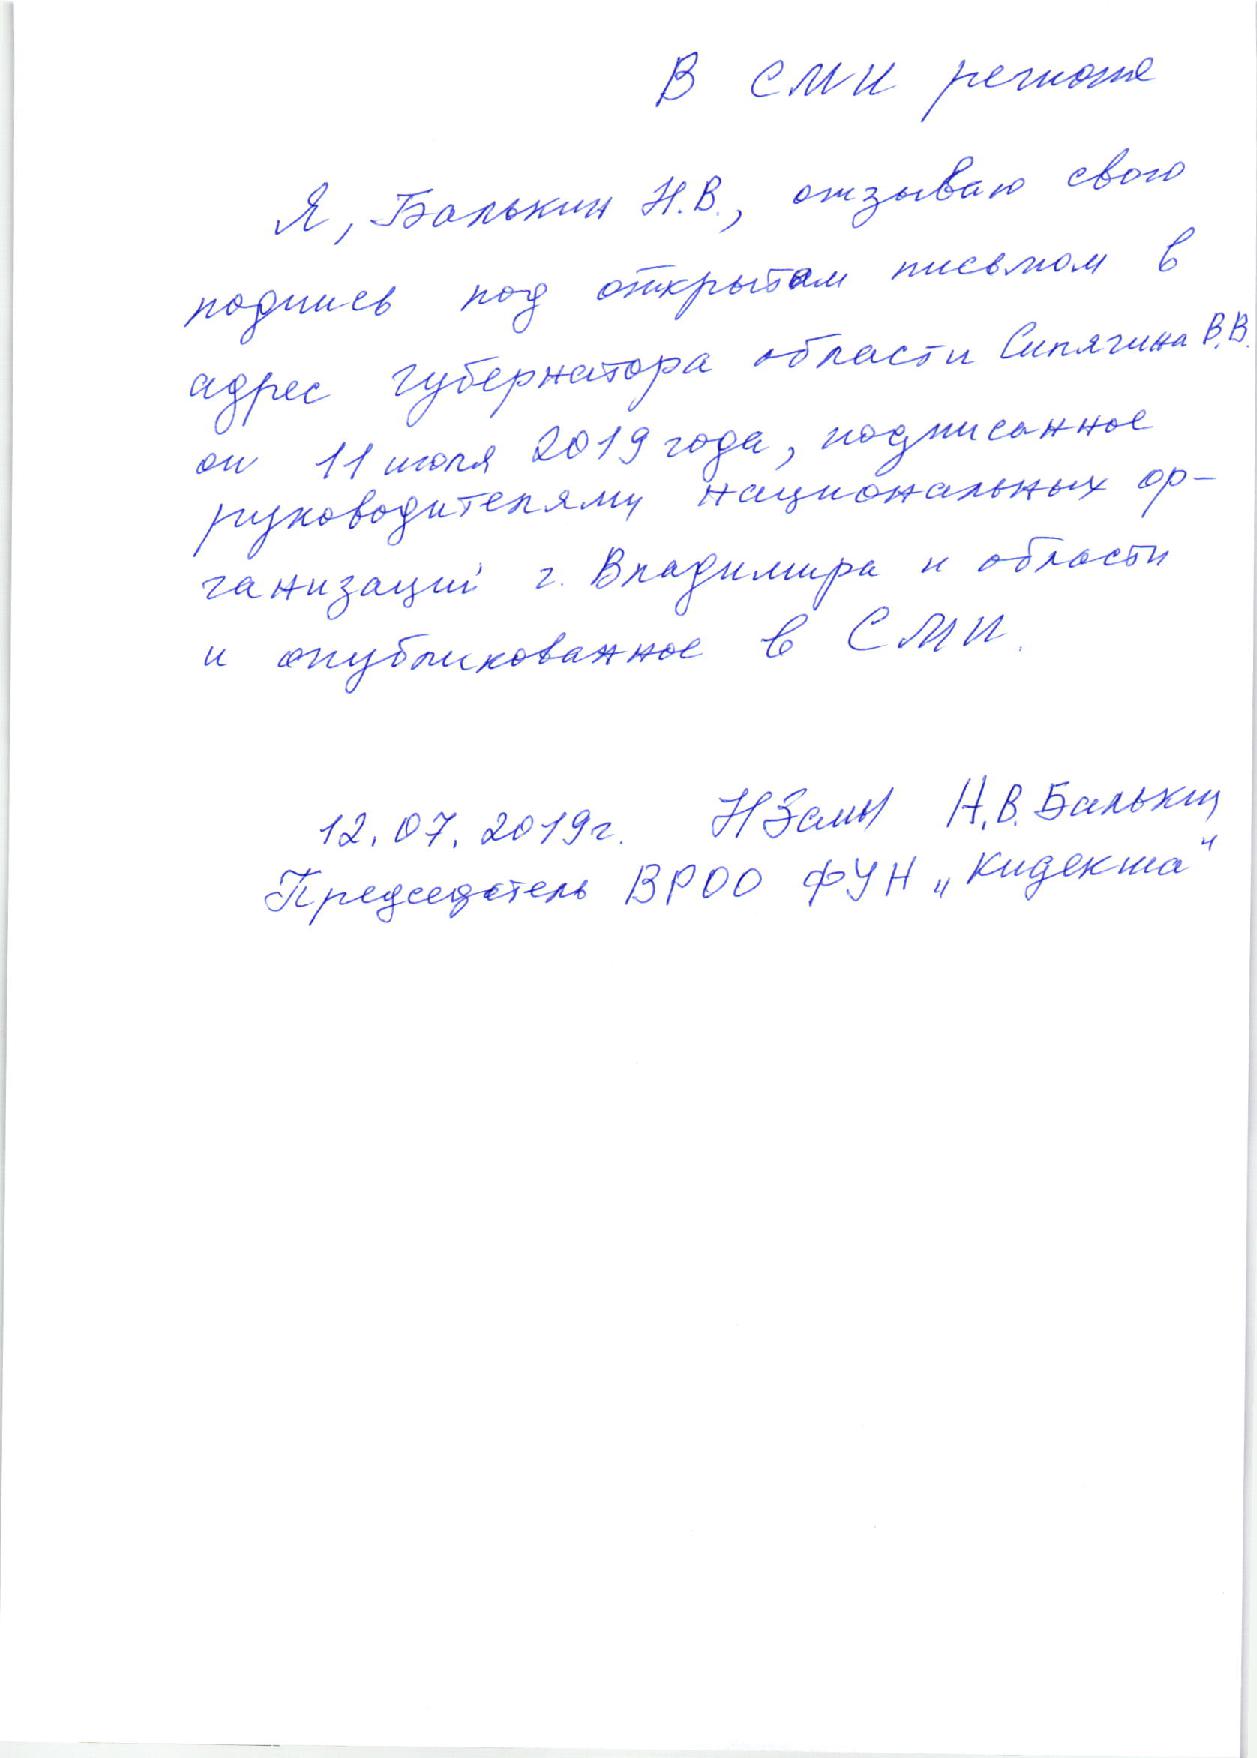 В СМИ региона
Я, Балыкин Н.В., отзываю свою
подпись под открытым письмом в
адрес губернатора области Сипягина В.В.
от 11 июля 2019 года, подписанное
руководителями национальных ор-
ганизаций г. Владимира и области
и опубликованное в СМИ.
12.07.2019г. Н.В. Балыкин
Председатель ВРОО ФУН „Кидекша"